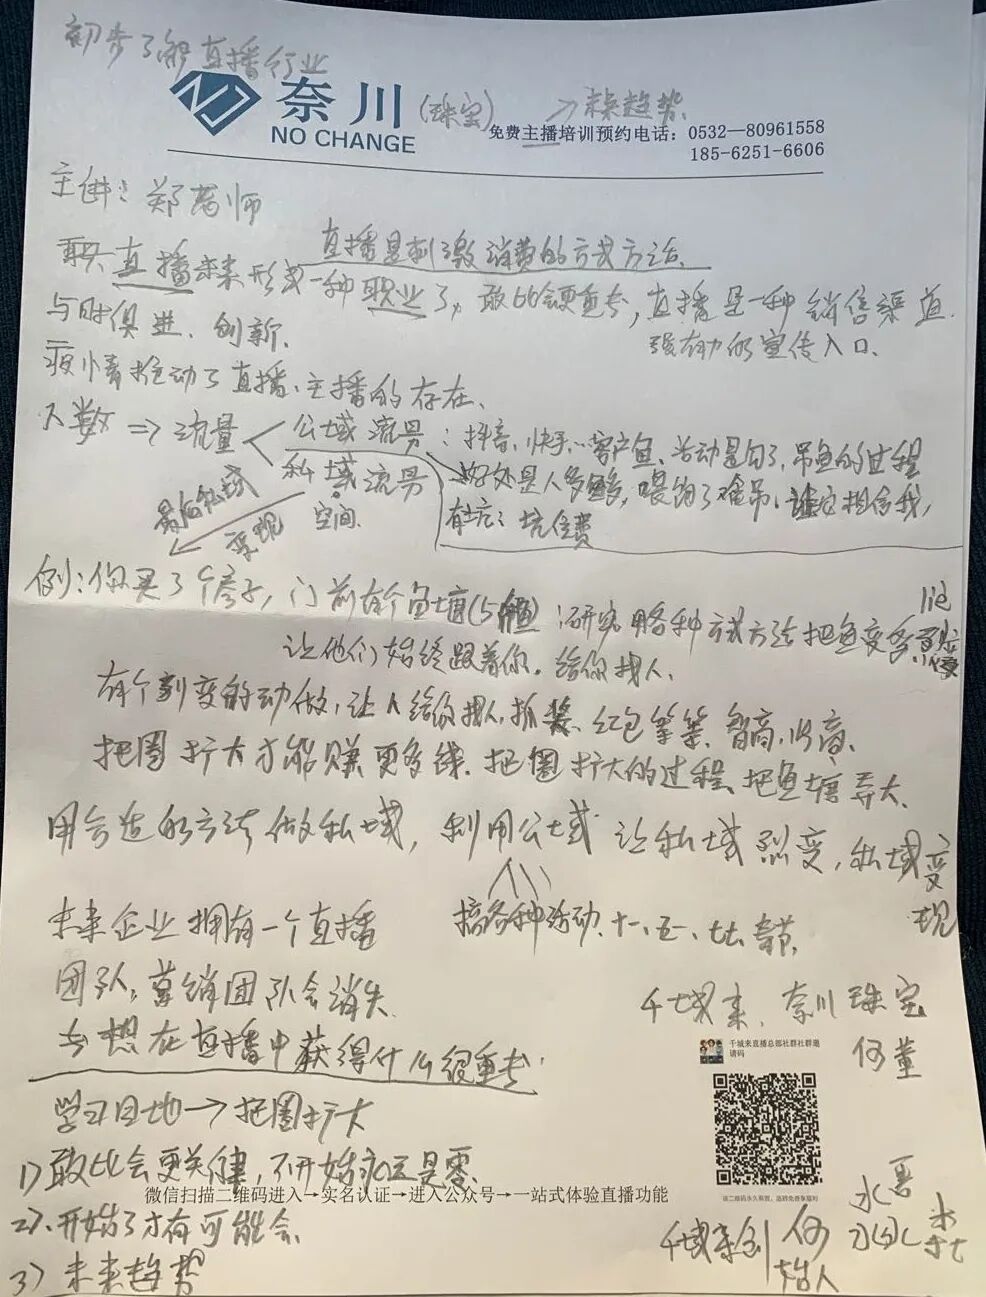 初步了解直播行业
奈川(珠宝) →未来趋势
NO CHANGE
免费主播培训预约电话:0532—80961558
185-6251-6606
主讲:郑老师
直播是刺激消费的方式方法
直播未来形成一种职业了,敢比会更重要,直播是一种销售渠道
与时俱进、创新、
强有力的宣传入口、
疫情推动了直播、主播的存在、
人数⇒流量
公域流量:抖音、快手…客户鱼、活动是勾子,吊鱼的过程
私域流量
好处是人多鱼多,喂饱了难吊、谁会相信我,
空间
变现
坑位费
例:你买了个房子,门前有个鱼塘(5鱼):研究用各种方式方法把鱼变多
让他们始终跟着你,给你找人、
有个裂变的动做、让人给你拉人、抓奖、红包等等、智商、
把圈扩大才能赚更多钱、把圈扩大的过程、把鱼塘弄大、
用合适的方法做私域,利用公域让私域烈变,私域变现
未来企业拥有一个直播
搞各种活动、十一、五一、七七、春节、
团队,营销团队会消失
千城来、奈川珠宝
去想在直播中获得什么很重要
何董
千城来直播总部社群社群邀请码
学习目地→把圈扩大
1)敢比会更关键,不开始永远是零、
微信扫描二维码进入→实名认证→进入公众号→一站式体验直播功能
2)、开始了才有可能会
千城来创始人 何
3)未来趋势